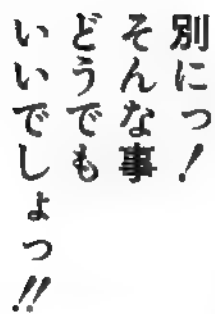 別にっ！
そんな事
どうでも
いいでしょっ!!